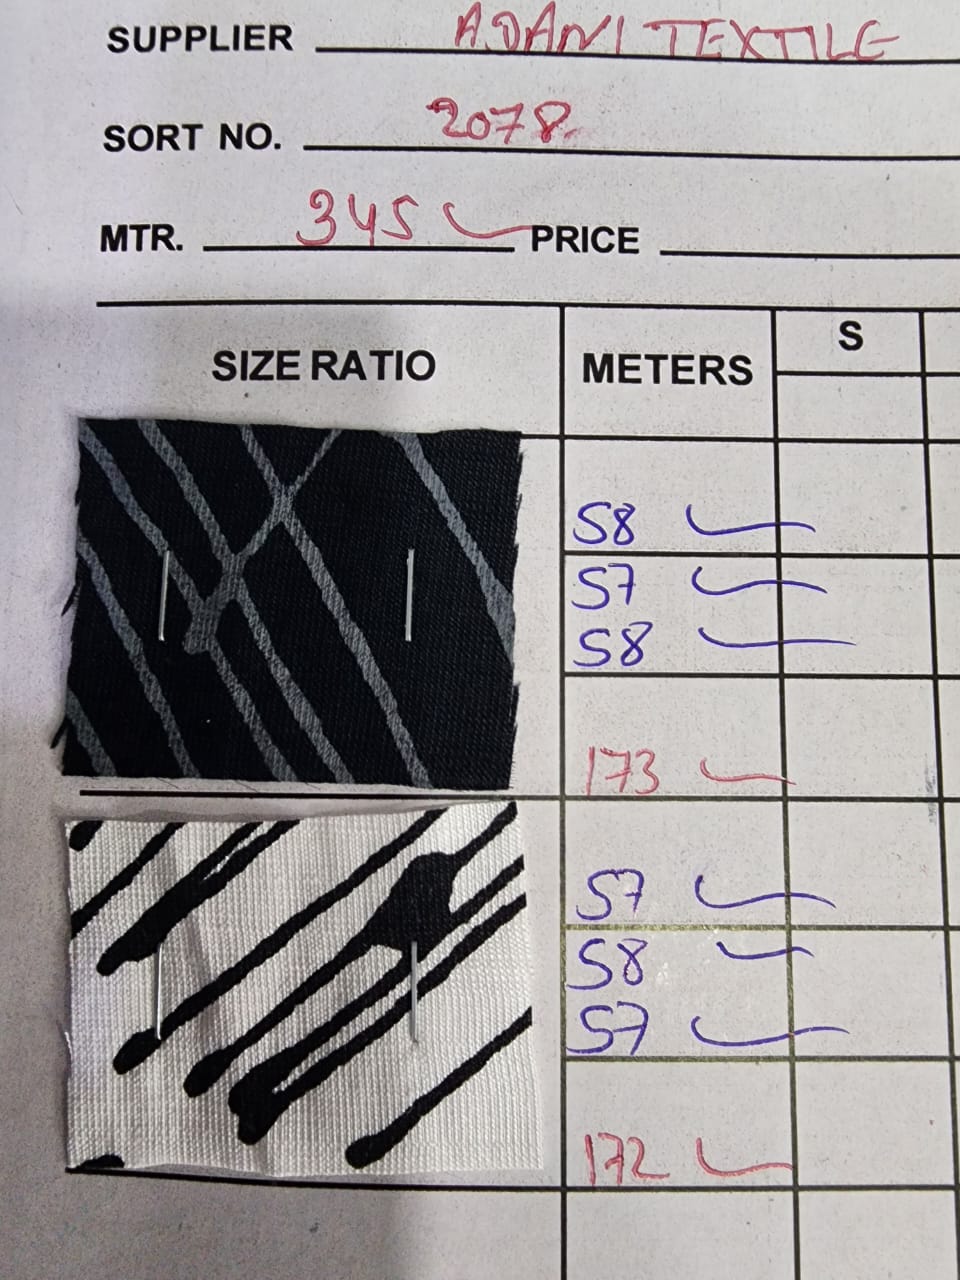 SUPPLIER ADANI TEXTILE
SORT NO. 2078
MTR. 345 PRICE
SIZE RATIO METERS S
58
57
58
173
57
58
57
172